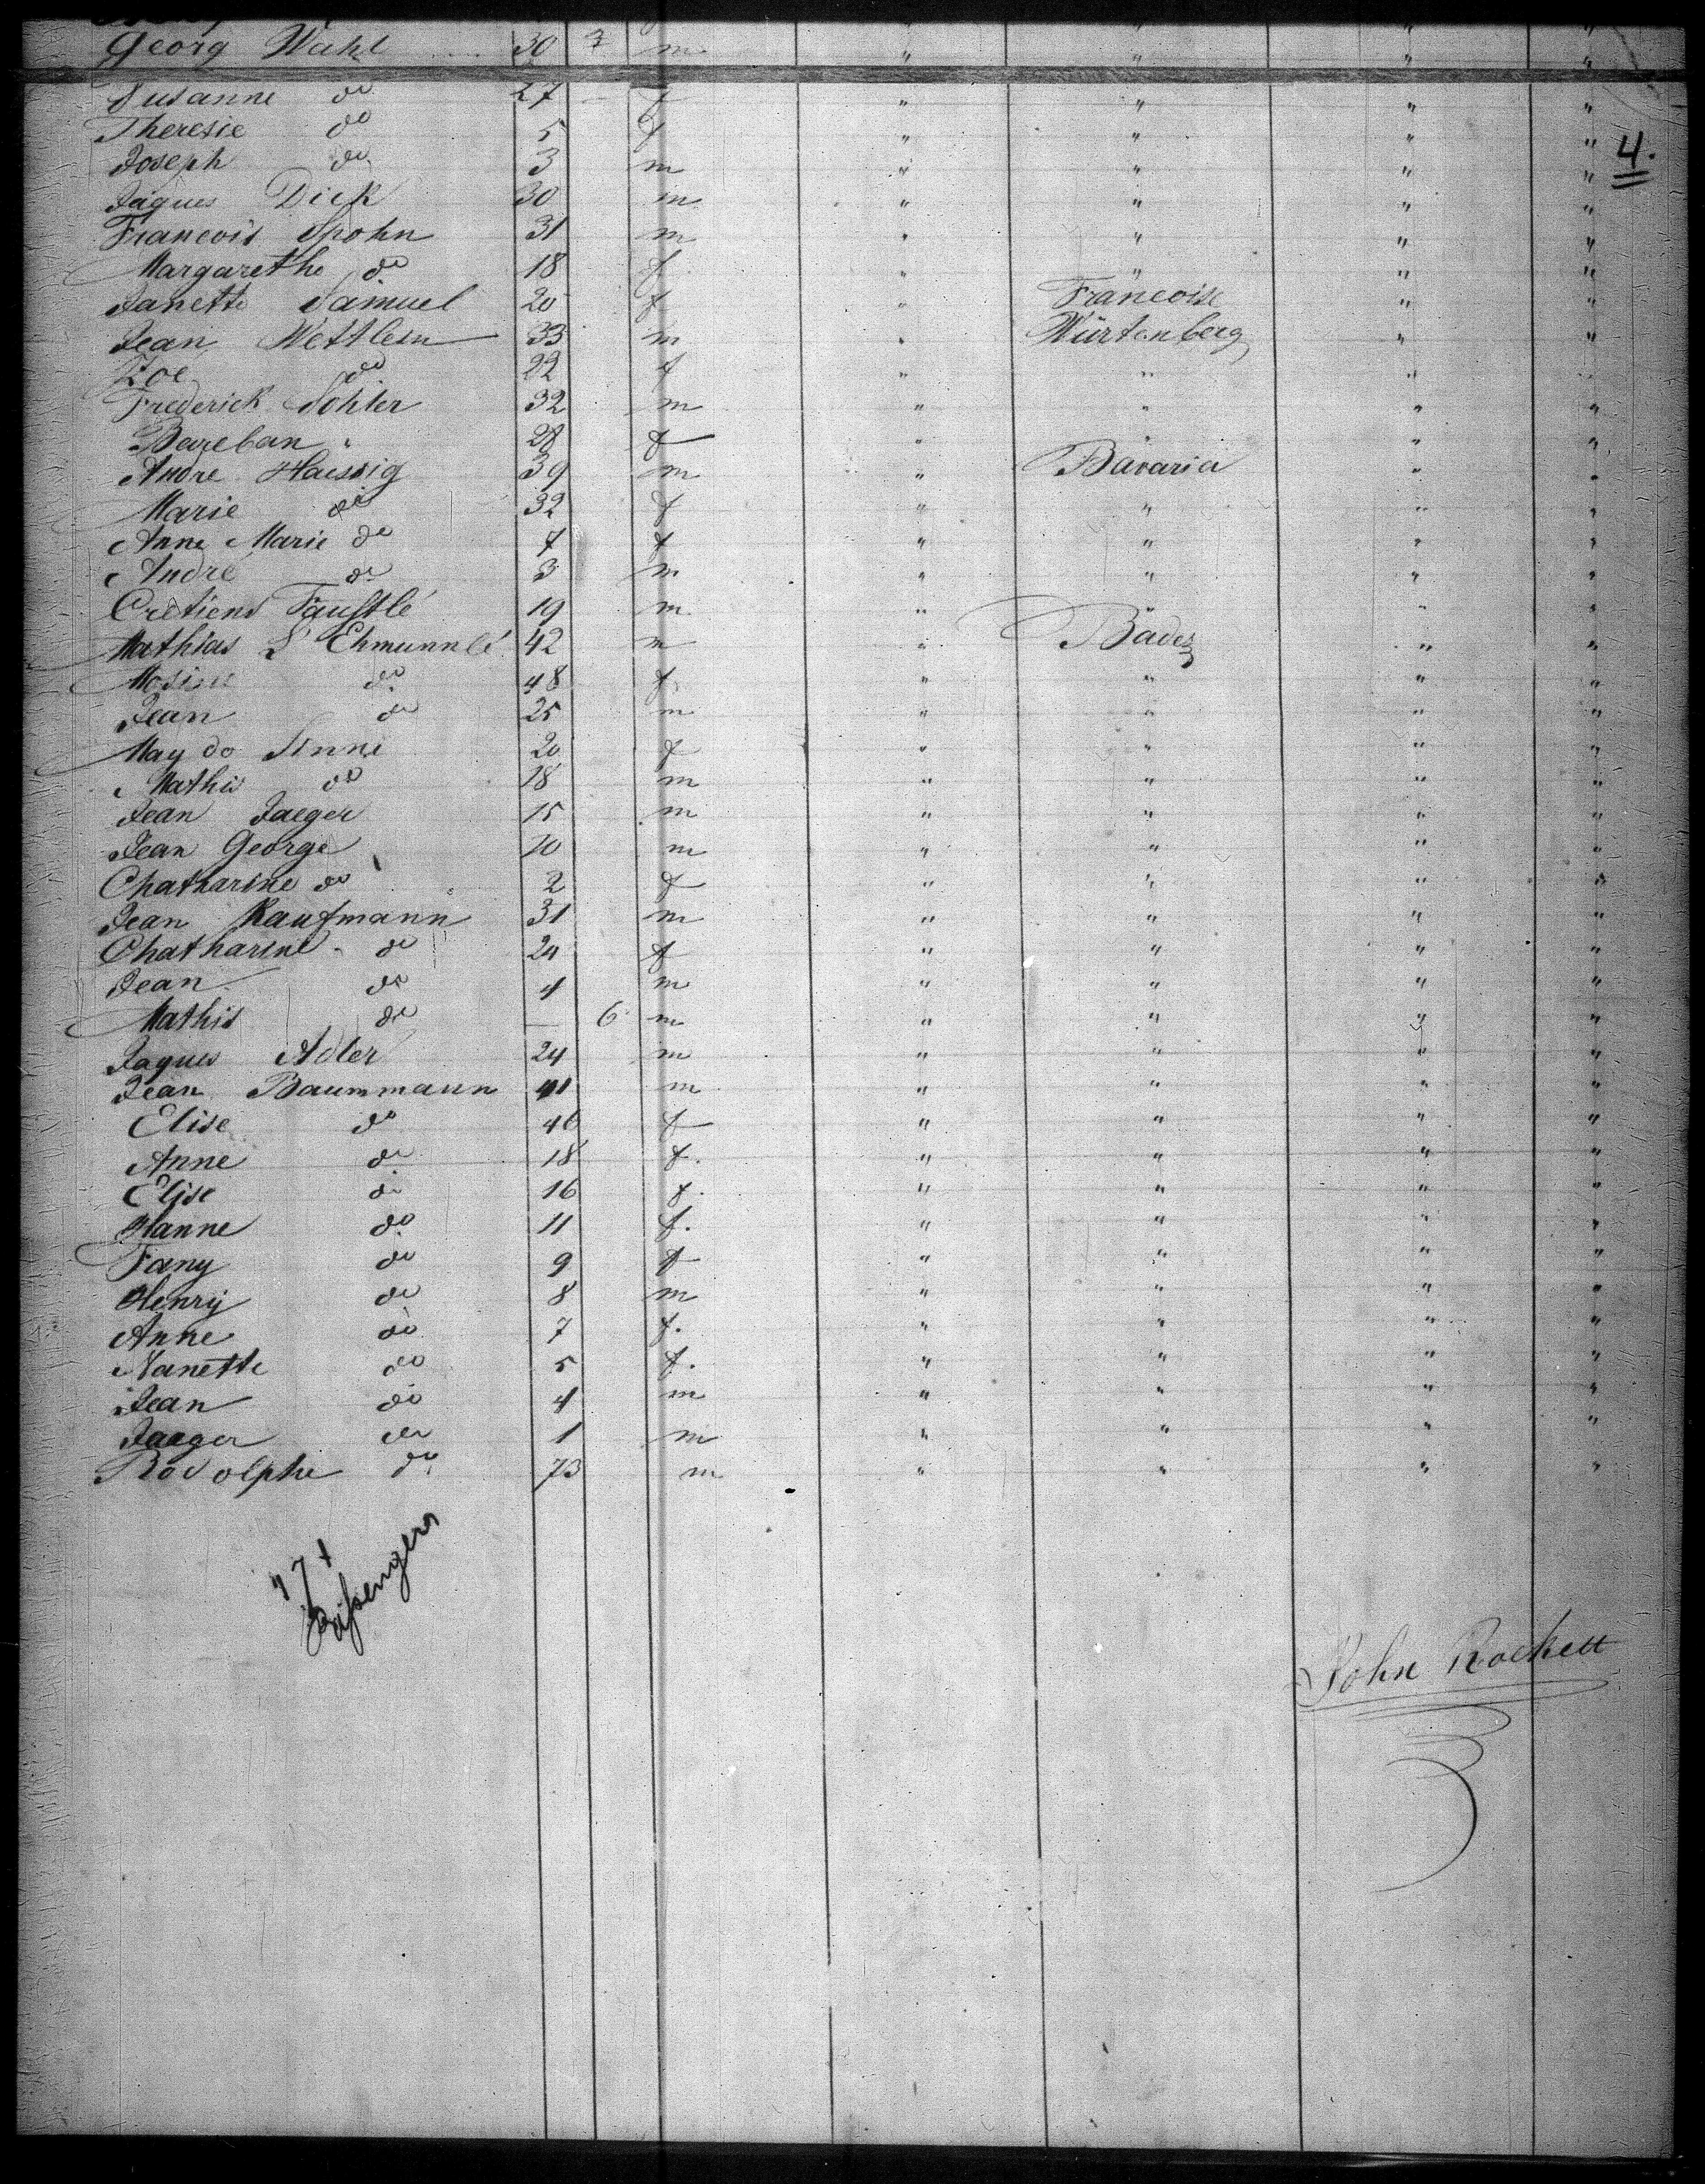 Georg Wahl 30 m " " " "
Susanne do 27 f " " " "
Theresie do 5 f " " " "
Joseph do 3 m " " " " 4.
Jaques Dick 30 m " " " "
Francois Spohn 31 m " " " "
Margarethe do 18 f " " " "
Janette Samuel 20 f " Francoise " "
Jean Wettlem 33 m " Würtenberg " "
Zoe do 22 f " " " "
Frederick Sohler 32 m " " " "
Bareban " 28 f " " " "
Andre Haessig 39 m " Bavaria " "
Marie do 32 f " " " "
Anne Marie do 7 f " " " "
André do 3 m " " " "
Cretiens Faustlé 19 m " " " "
Mathias S' Ehmunnlé 42 m " Baden " "
Rosine do 48 f " " " "
Jean do 25 m " " " "
May do Sinne 20 f " " " "
Mathis do 18 m " " " "
Jean Jaeger 15 m " " " "
Jean George 10 m " " " "
Chatharine do 2 f " " " "
Jean Kaufmann 31 m " " " "
Chatharine do 24 f " " " "
Jean do 4 m " " " "
Mathis do — 6 m " " " "
Jaques Adler 24 m " " " "
Jean Baummann 41 m " " " "
Elise do 46 f " " " "
Anne do 18 f. " " " "
Elise do 16 f. " " " "
Hanne do 11 f. " " " "
Fany do 9 f " " " "
Henry do 8 m " " " "
Anne do 7 f. " " " "
Nanette do 5 f. " " " "
Jean do 4 m " " " "
Jaeger do 1 m " " " "
Rodolphe do 73 m " " " "
Passengers
John Rockett